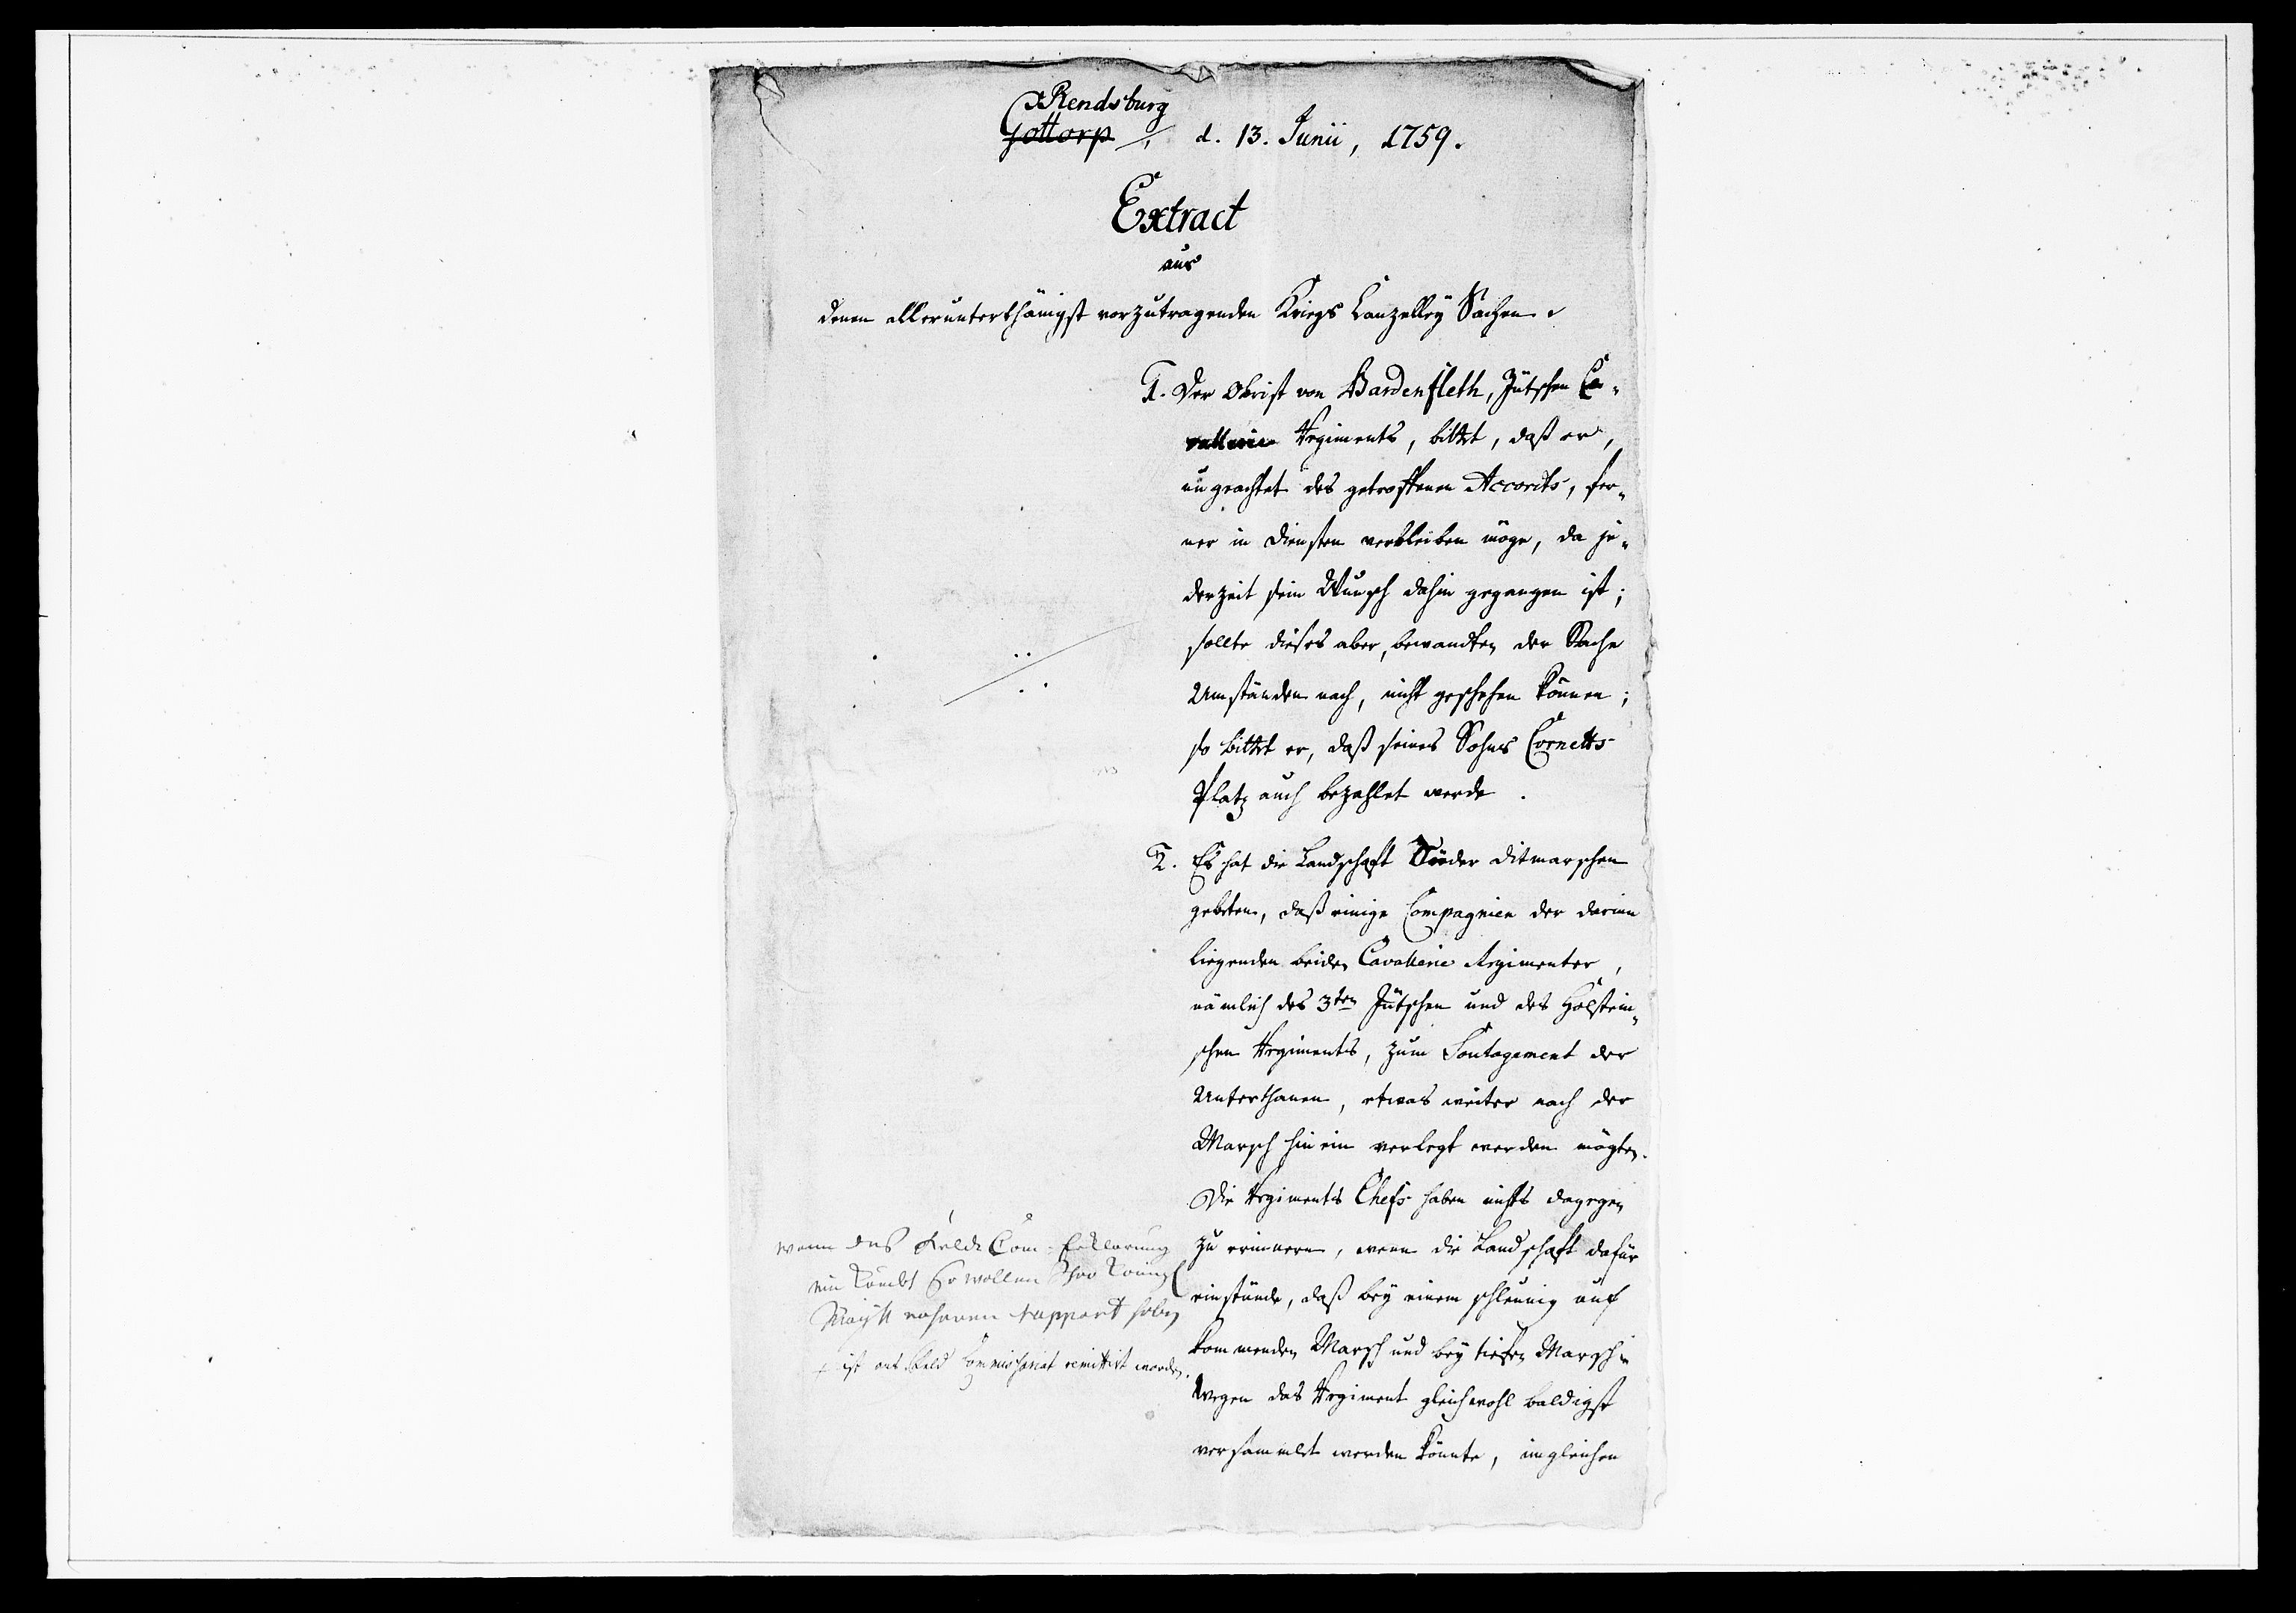 Rendsburg
Gottorp, d. 13. Junii, 1759.
Extract
aus
denen allerunterthänigst vorzutragenden Kriegs Canzelley Sachen.
1. Der Obrist von Bardenfleth, Jütschen Ca-
vallerie Regiments, bittet, daß er,
ungeachtet des getroffenen Accords, fer-
ner in Diensten verbleiben möge, da je-
derzeit sein Wunsch dahin gegangen ist;
sollte dieses aber, bewandten der Sache
Umständen nach, nicht geschehen können;
so bittet er, daß seines Sohnes Cornetts
Platz auch bezahlet werde.
2. Es hat die Landschaft Süder Ditmarschen
gebeten, daß einige Compagnien der darinn
liegenden beiden Cavallerie Regimenter,
nämlich des 3ten Jütschen und des Holstein-
schen Regiments, zum Soutagement der
Unterthanen, etwas weiter nach der
Marsch hinein verlegt werden mögten.
Die Regiments Chefs haben nichts dagegen
zu erinnern, wenn die Landschaft dafür
einstünde, daß bey einem schleunig auf
kommenden Marsch und bey tiefen Marsch-
wegen das Regiment gleichwohl baldigst
versammlet werden könnte, imgleichen
wenn das Feldt Com. Erklarung
ein kombt so wollen Ihro Königl
Maystt naheren rapport haben
+ ist ans Feld Commissariat remittirt worden.